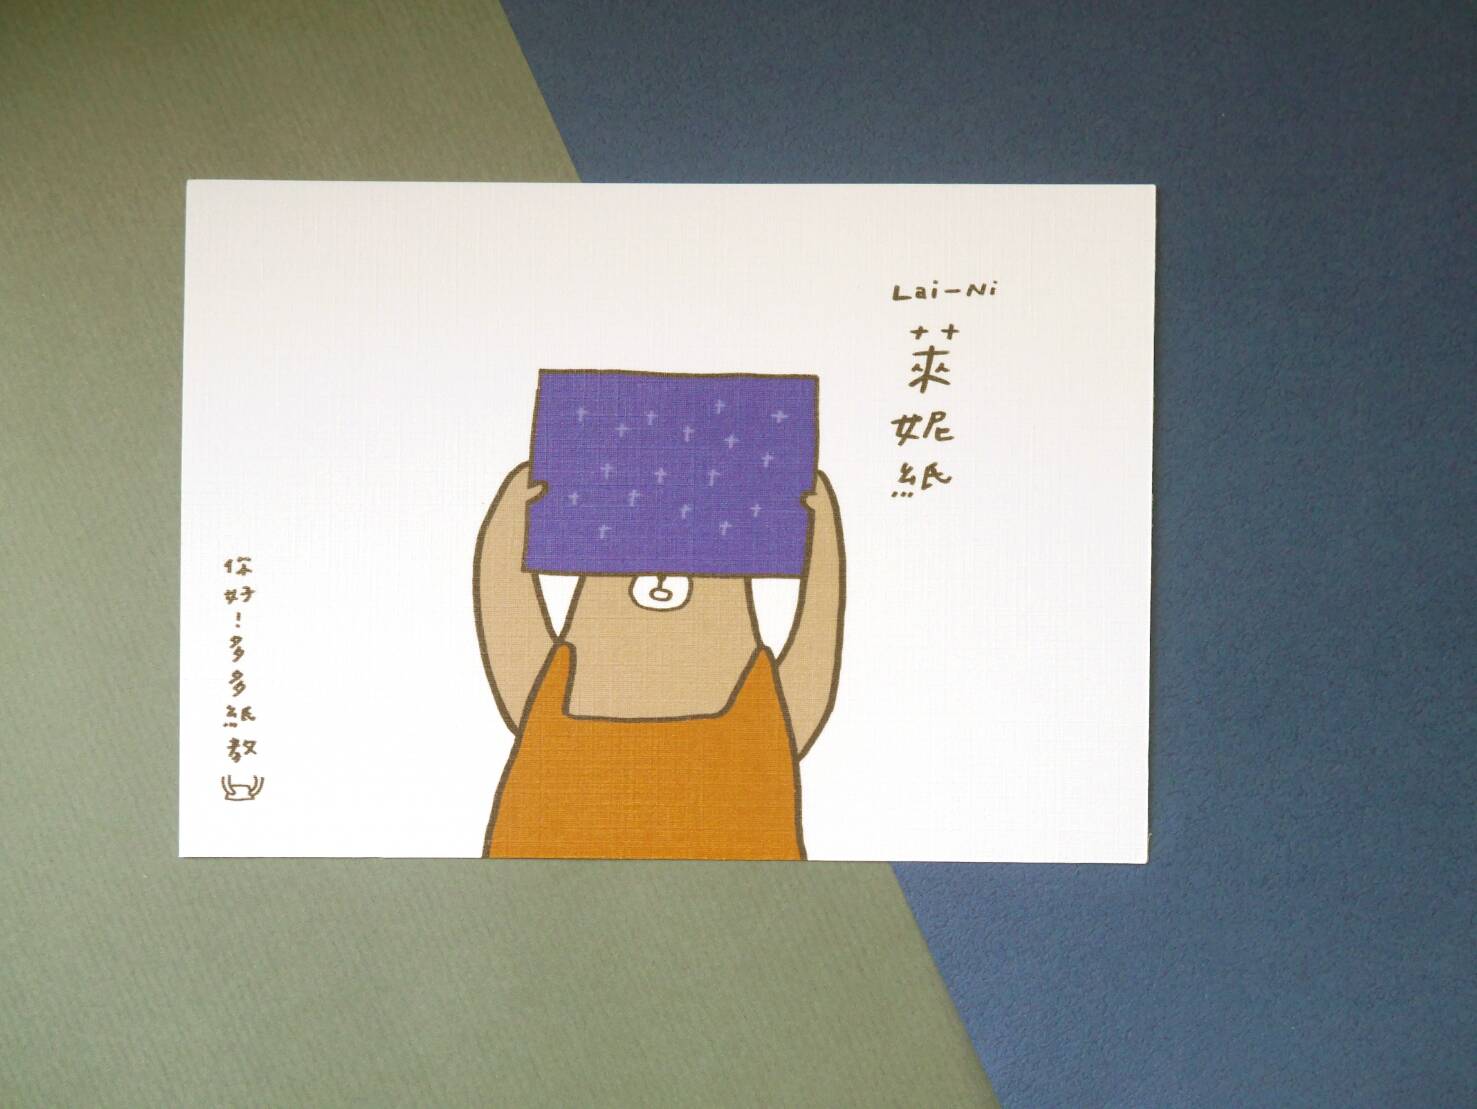 Lai-Ni
萊妮紙
你好！多多紙教